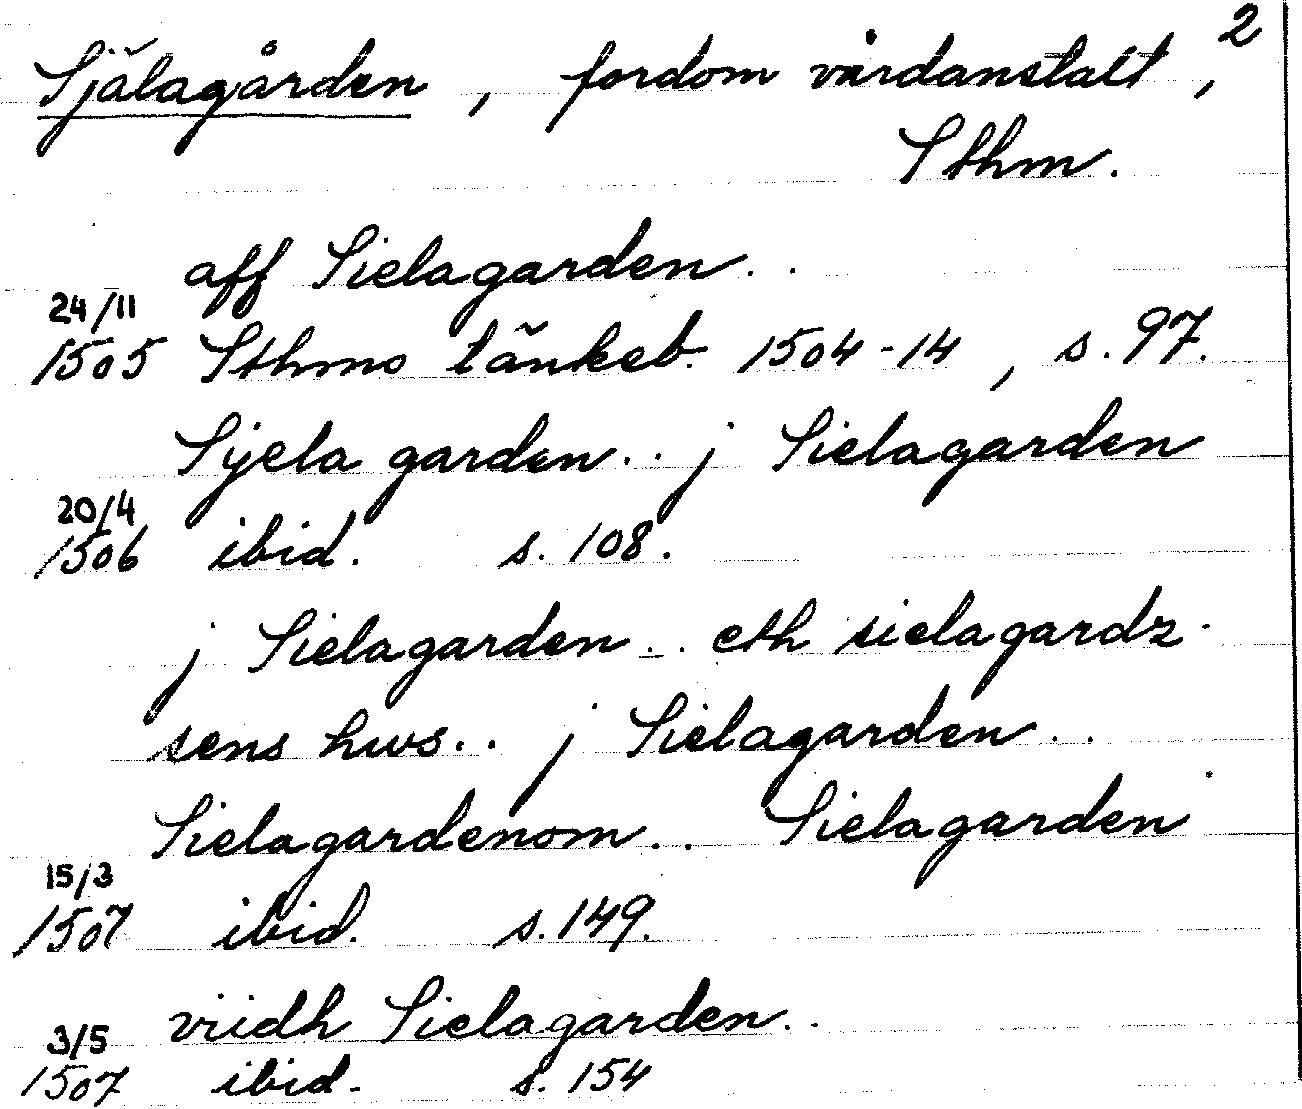 2
Själagården, fordom vårdanstalt,
Sthm.
aff Sielagarden..
24/11
1505 Sthms tänkeb. 1504-14, s. 97.
Sijela garden.. j Sielagarden
20/4
1506 ibid. s. 108.
j Sielagarden.. eth sielagardz-
sens hws.. j Sielagarden..
Sielagardenom.. Sielagarden
15/3
1507 ibid. s. 149.
viidh Sielagarden..
3/5
1507 ibid. s. 154